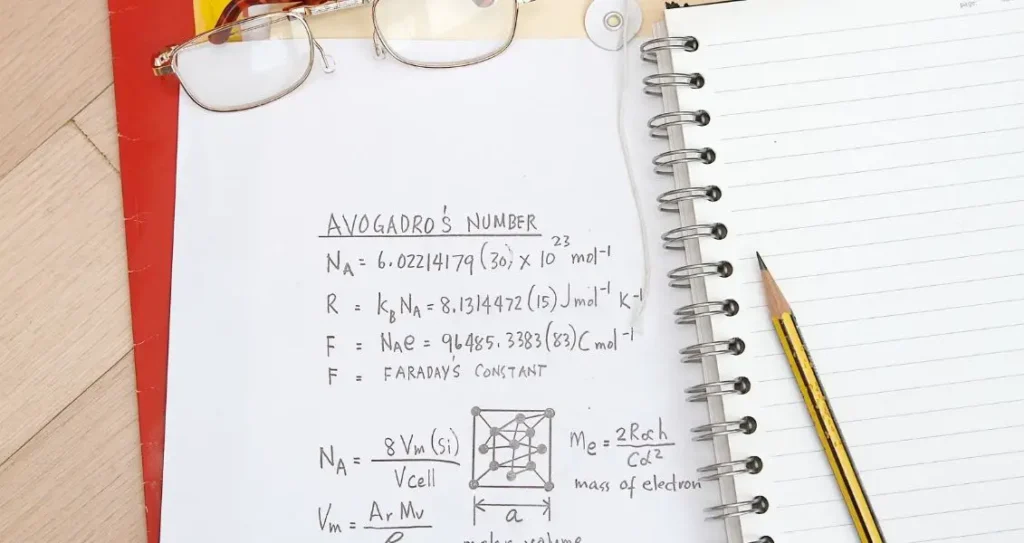 AVOGADRO'S NUMBER
N_A = 6.02214179(30) × 10^23 mol^-1
R = k_B N_A = 8.1314472(15) J mol^-1 K^-1
F = N_A e = 96485.3383(83) C mol^-1
F = FARADAY'S CONSTANT
N_A = 8 Vm (Si) / Vcell
M_e = 2R∞h / Cα^2
mass of electron
a
V_m = Ar Mu /
molar volume